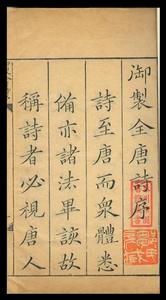 御製全唐詩序
詩至唐而衆體悉
備亦諸法畢該故
稱詩者必視唐人